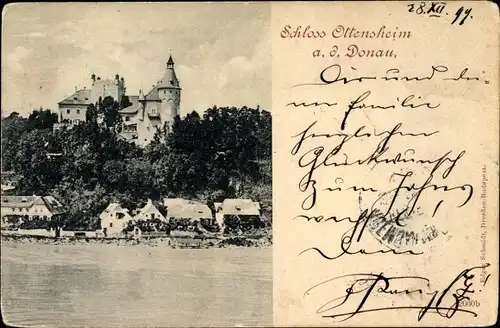 28. XII. 99.
Schloss Ottensheim
a. d. Donau.
Dir und dei
nen Familie
herzlichen
Glückwunsch
zum Jahres
wechsel!
Dein
Edgar Schmidt, Dresden-Budapest.
2060b